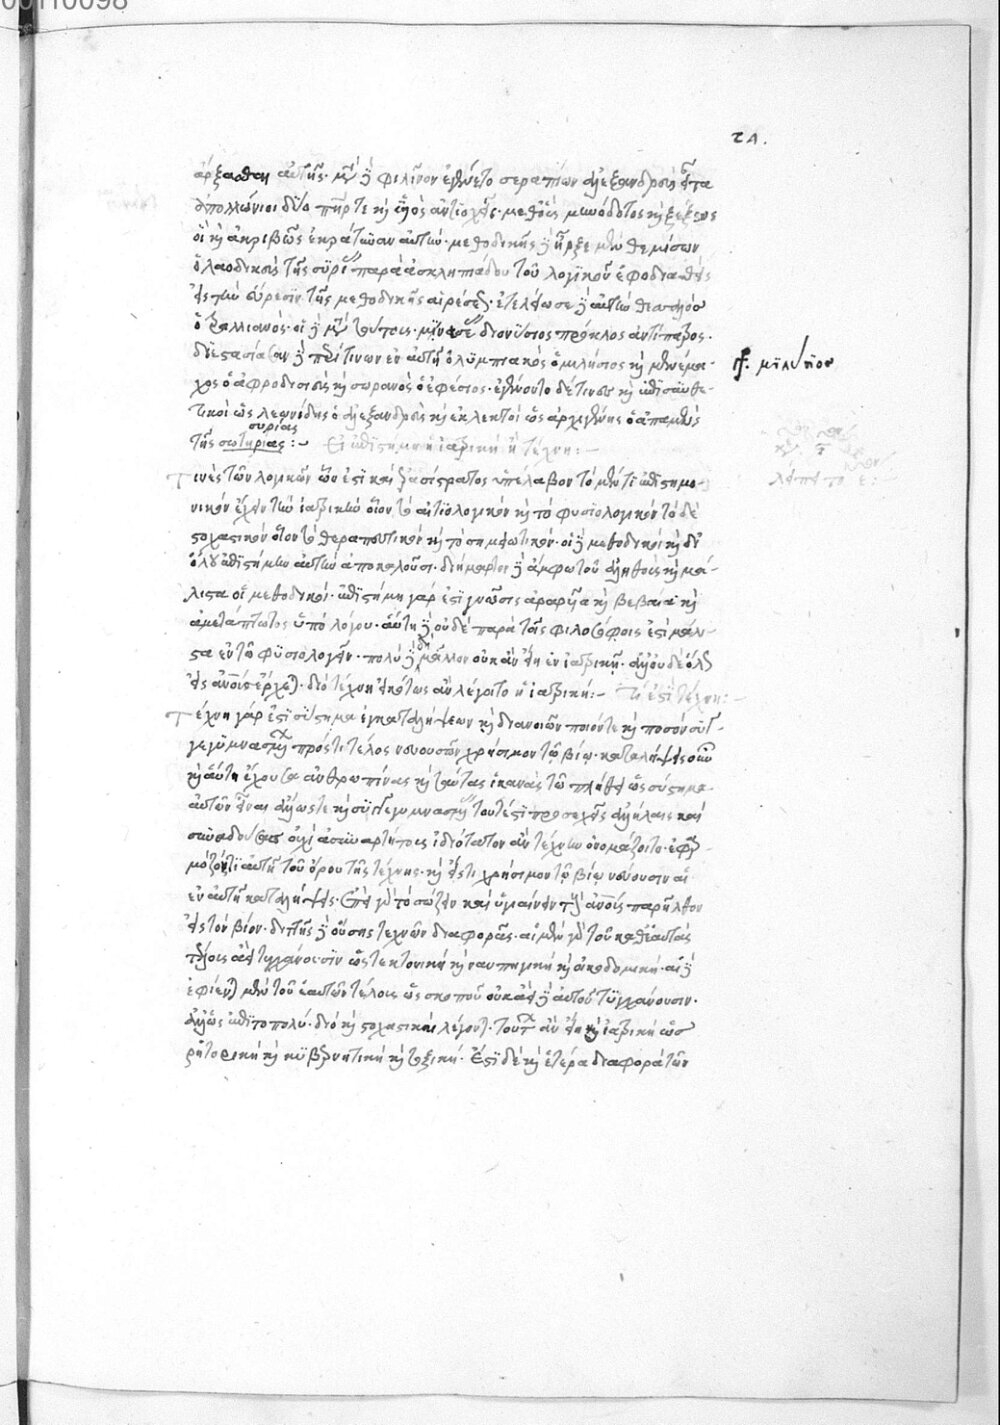 ἄρξασθαι αὐτῆς. μετὰ δὲ φιλῖνον ἐγένετο σεραπίων ἀλεξανδρεὺς εἶτα
ἀπολλώνιοι δύο πατήρ τε καὶ υἱὸς ἀντιοχεῖς. μεθ' οὓς μηνόδοτος καὶ σέξτος
οἳ καὶ ἀκριβῶς ἐκράτυναν αὐτήν. μεθοδικῆς δὲ ἦρξε μὲν θεμίσων
ὁ λαοδικεὺς τῆς συρίας παρὰ ἀσκληπιάδου τοῦ λογικοῦ ἐφοδιασθεὶς
εἰς τὴν εὕρεσιν τῆς μεθοδικῆς αἱρέσεως. ἐτελείωσε δὲ αὐτὴν θεσσαλὸς
ὁ τραλλιανός. οἱ δὲ μετὰ τούτοις. μνασέας διονύσιος πρόκλος ἀντίπατρος.
διεστασίασαν δὲ περί τινων ἐν αὐτῇ ὀλυμπιακὸς ὁ μιλήσιος καὶ μενέμα-
χος ὁ ἀφροδισιεὺς καὶ σωρανὸς ὁ ἐφέσιος. ἐγένοντο δέ τινες καὶ ἐπισυνθε-
τικοὶ ὡς λεωνίδης ὁ ἀλεξανδρεὺς καὶ ἐκλεκτοὶ ὡς ἀρχιγένης ὁ ἀπαμεὺς
συρίας
τῆς σωτηρίας :- Εἰ ἐπιστήμη ἡ ἰατρικὴ ἢ τέχνη :-
Τινὲς τῶν λογικῶν ὧν ἐστὶ καὶ ἐρασίστρατος ὑπέλαβον τὸ μέν τι ἐπιστημο-
νικὸν ἔχειν τὴν ἰατρικὴν οἷον τὸ αἰτιολογικὸν καὶ τὸ φυσιολογικὸν τὸ δὲ
στοχαστικὸν οἷον τὸ θεραπευτικὸν καὶ τὸ σημειωτικόν. οἱ δὲ μεθοδικοὶ καὶ δι'
ὅλου ἐπιστήμην αὐτὴν ἀποκαλοῦσι. διήμαρτοι δὲ ἄμφω τοῦ ἀληθοῦς καὶ μά-
λιστα οἱ μεθοδικοί. ἐπιστήμη γάρ ἐστι γνῶσις ἀραρυῖα καὶ βεβαία καὶ
ἀμετάπτωτος ὑπὸ λόγου. αὕτη δὲ οὐδὲ παρὰ τοῖς φιλοσόφοις ἐστὶ μάλι-
στα ἐν τῷ φυσιολογεῖν. πολὺ δὲ δὴ μᾶλλον οὐκ ἂν εἴη ἐν ἰατρικῇ. ἀλλ' οὐδὲ ὅλως
εἰς ἀνθρώπους ἔρχεται. διὸ τέχνη εἰκότως ἂν λέγοιτο ἡ ἰατρική :- Τί ἐστὶ τέχνη :-
Τέχνη γάρ ἐστι σύστημα ἐγκαταλήψεων καὶ διανοιῶν ποιόν τε καὶ ποσὸν συγ-
γεγυμνασμένων πρός τι τέλος νευουσῶν χρήσιμον τῷ βίῳ. καταλήψεις οὖν
καὶ αὕτη ἔχουσα ἀνθρωπίνας καὶ ταύτας ἱκανὰς τῷ πλήθει ὡς σύστημα
αὐτῶν εἶναι ἀλλ' ὥστε καὶ συγγεγυμνασμένας τουτέστι προσεχεῖς ἀλλήλαις καὶ
συναδούσας οὐχὶ ἀσυναρτήτους ἰδιότατον ἂν τέχνην ὀνομάζοιτο. ἐφαρ-
μόζοντι αὐτῇ τοῦ ὅρου τῆς τέχνης. καὶ εἴς τι χρήσιμον τῷ βίῳ νεύουσιν αἱ
ἐν αὐτῇ καταλήψεις. ἐπεὶ γὰρ τὸ σώζειν καὶ ὑγιαίνειν τοὺς ἀνθρώπους παρῆλθον
εἰς τὸν βίον. διττῆς δὲ οὔσης τεχνῶν διαφορᾶς. αἱ μὲν γὰρ τοῦ καθ' ἑαυτὰς
τέλους ἀεὶ τυγχάνουσιν ὡς τεκτονικὴ καὶ ναυπηγικὴ καὶ οἰκοδομική. αἱ δὲ
ἐφίενται μὲν τοῦ ἑαυτῶν τέλους ὡς σκοποῦ οὐκ ἀεὶ δὲ αὐτοῦ τυγχάνουσιν.
ἀλλ' ὡς ἐπὶ τὸ πολύ. διὸ καὶ στοχαστικαὶ λέγονται. τούτων ἂν εἴη καὶ ἰατρικὴ ὡς
ῥητορικὴ καὶ κυβερνητικὴ καὶ τοξική. Ἔστι δὲ καὶ ἑτέρα διαφορὰ τῶν